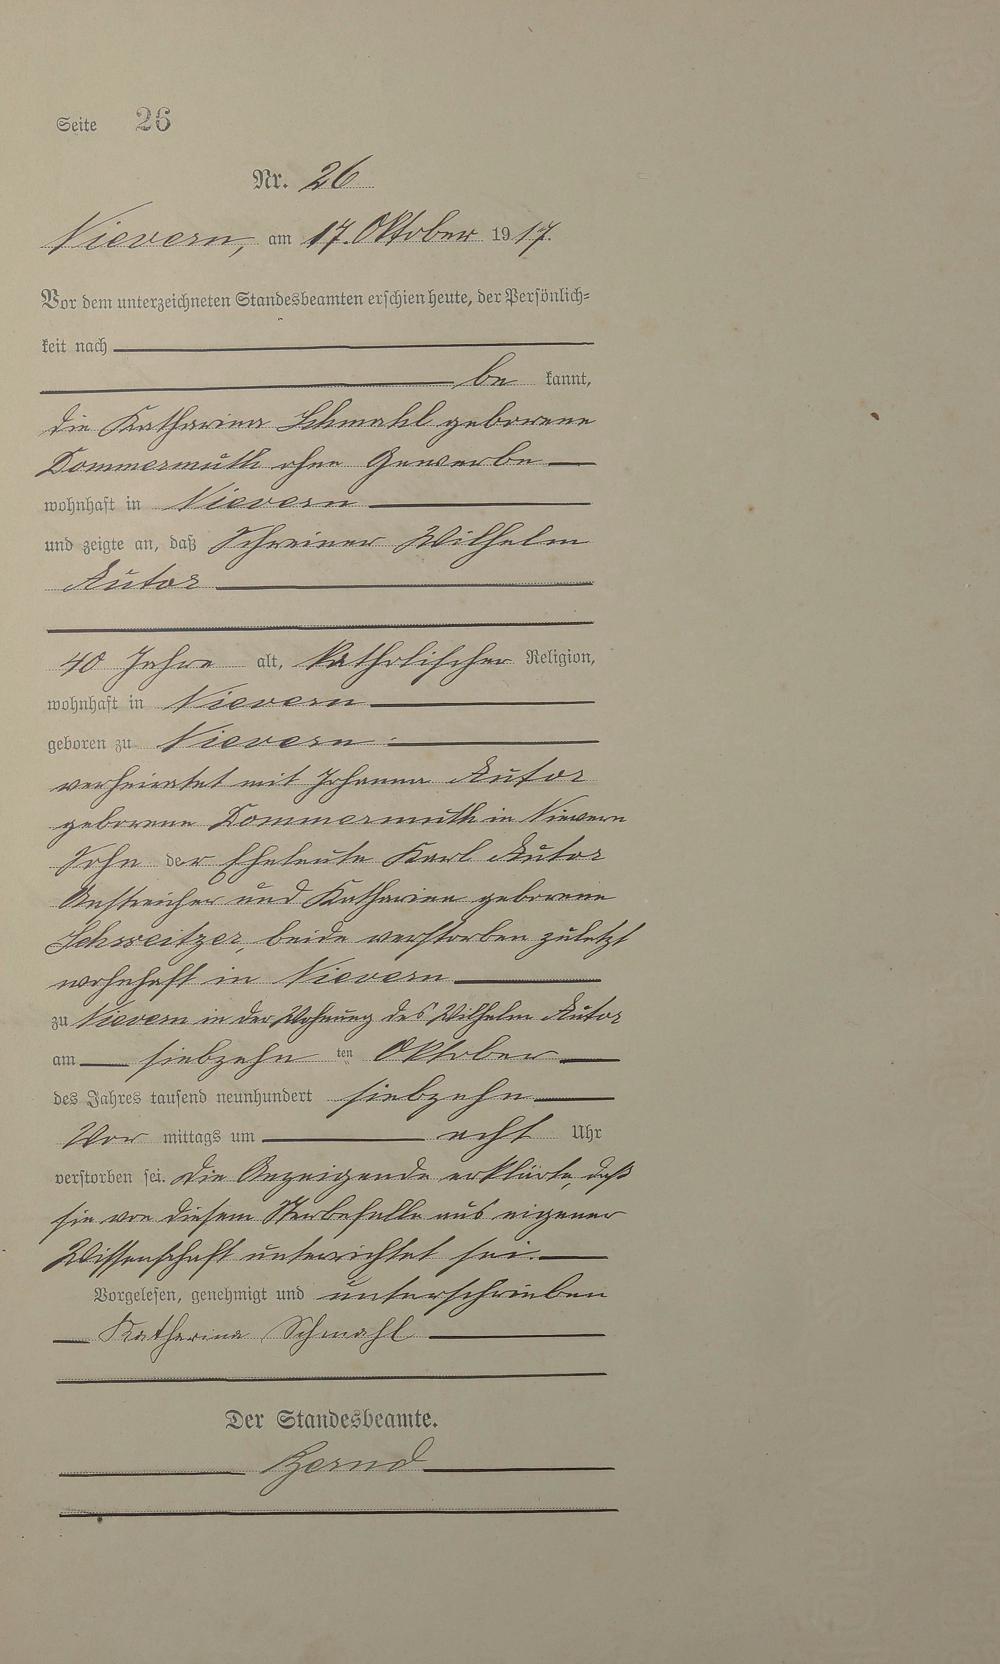 Seite 26
Nr. 26
Nievern, am 17. Oktober 1917.
Vor dem unterzeichneten Standesbeamten erschien heute, der Persönlich-
keit nach
be kannt,
die Katharina Schmahl geborene
Dommermuth ohne Gewerbe
wohnhaft in Nievern
und zeigte an, daß Schreiner Wilhelm
Autor
40 Jahre alt, katholischer Religion,
wohnhaft in Nievern
geboren zu Nievern
verheiratet mit Johanna Autor
geborene Dommermuth in Nievern
Sohn der Eheleute Karl Autor
Anstreicher und Katharina geborene
Schweitzer, beide verstorben zuletzt
wohnhaft in Nievern
zu Nievern in der Wohnung des Wilhelm Autor
am siebzehn ten Oktober
des Jahres tausend neunhundert siebzehn
Vor mittags um acht Uhr
verstorben sei. Die Anzeigende erklärte, daß
sie von diesem Sterbefalle aus eigener
Wissenschaft unterrichtet sei.
Vorgelesen, genehmigt und unterschrieben
Katharina Schmahl
Der Standesbeamte.